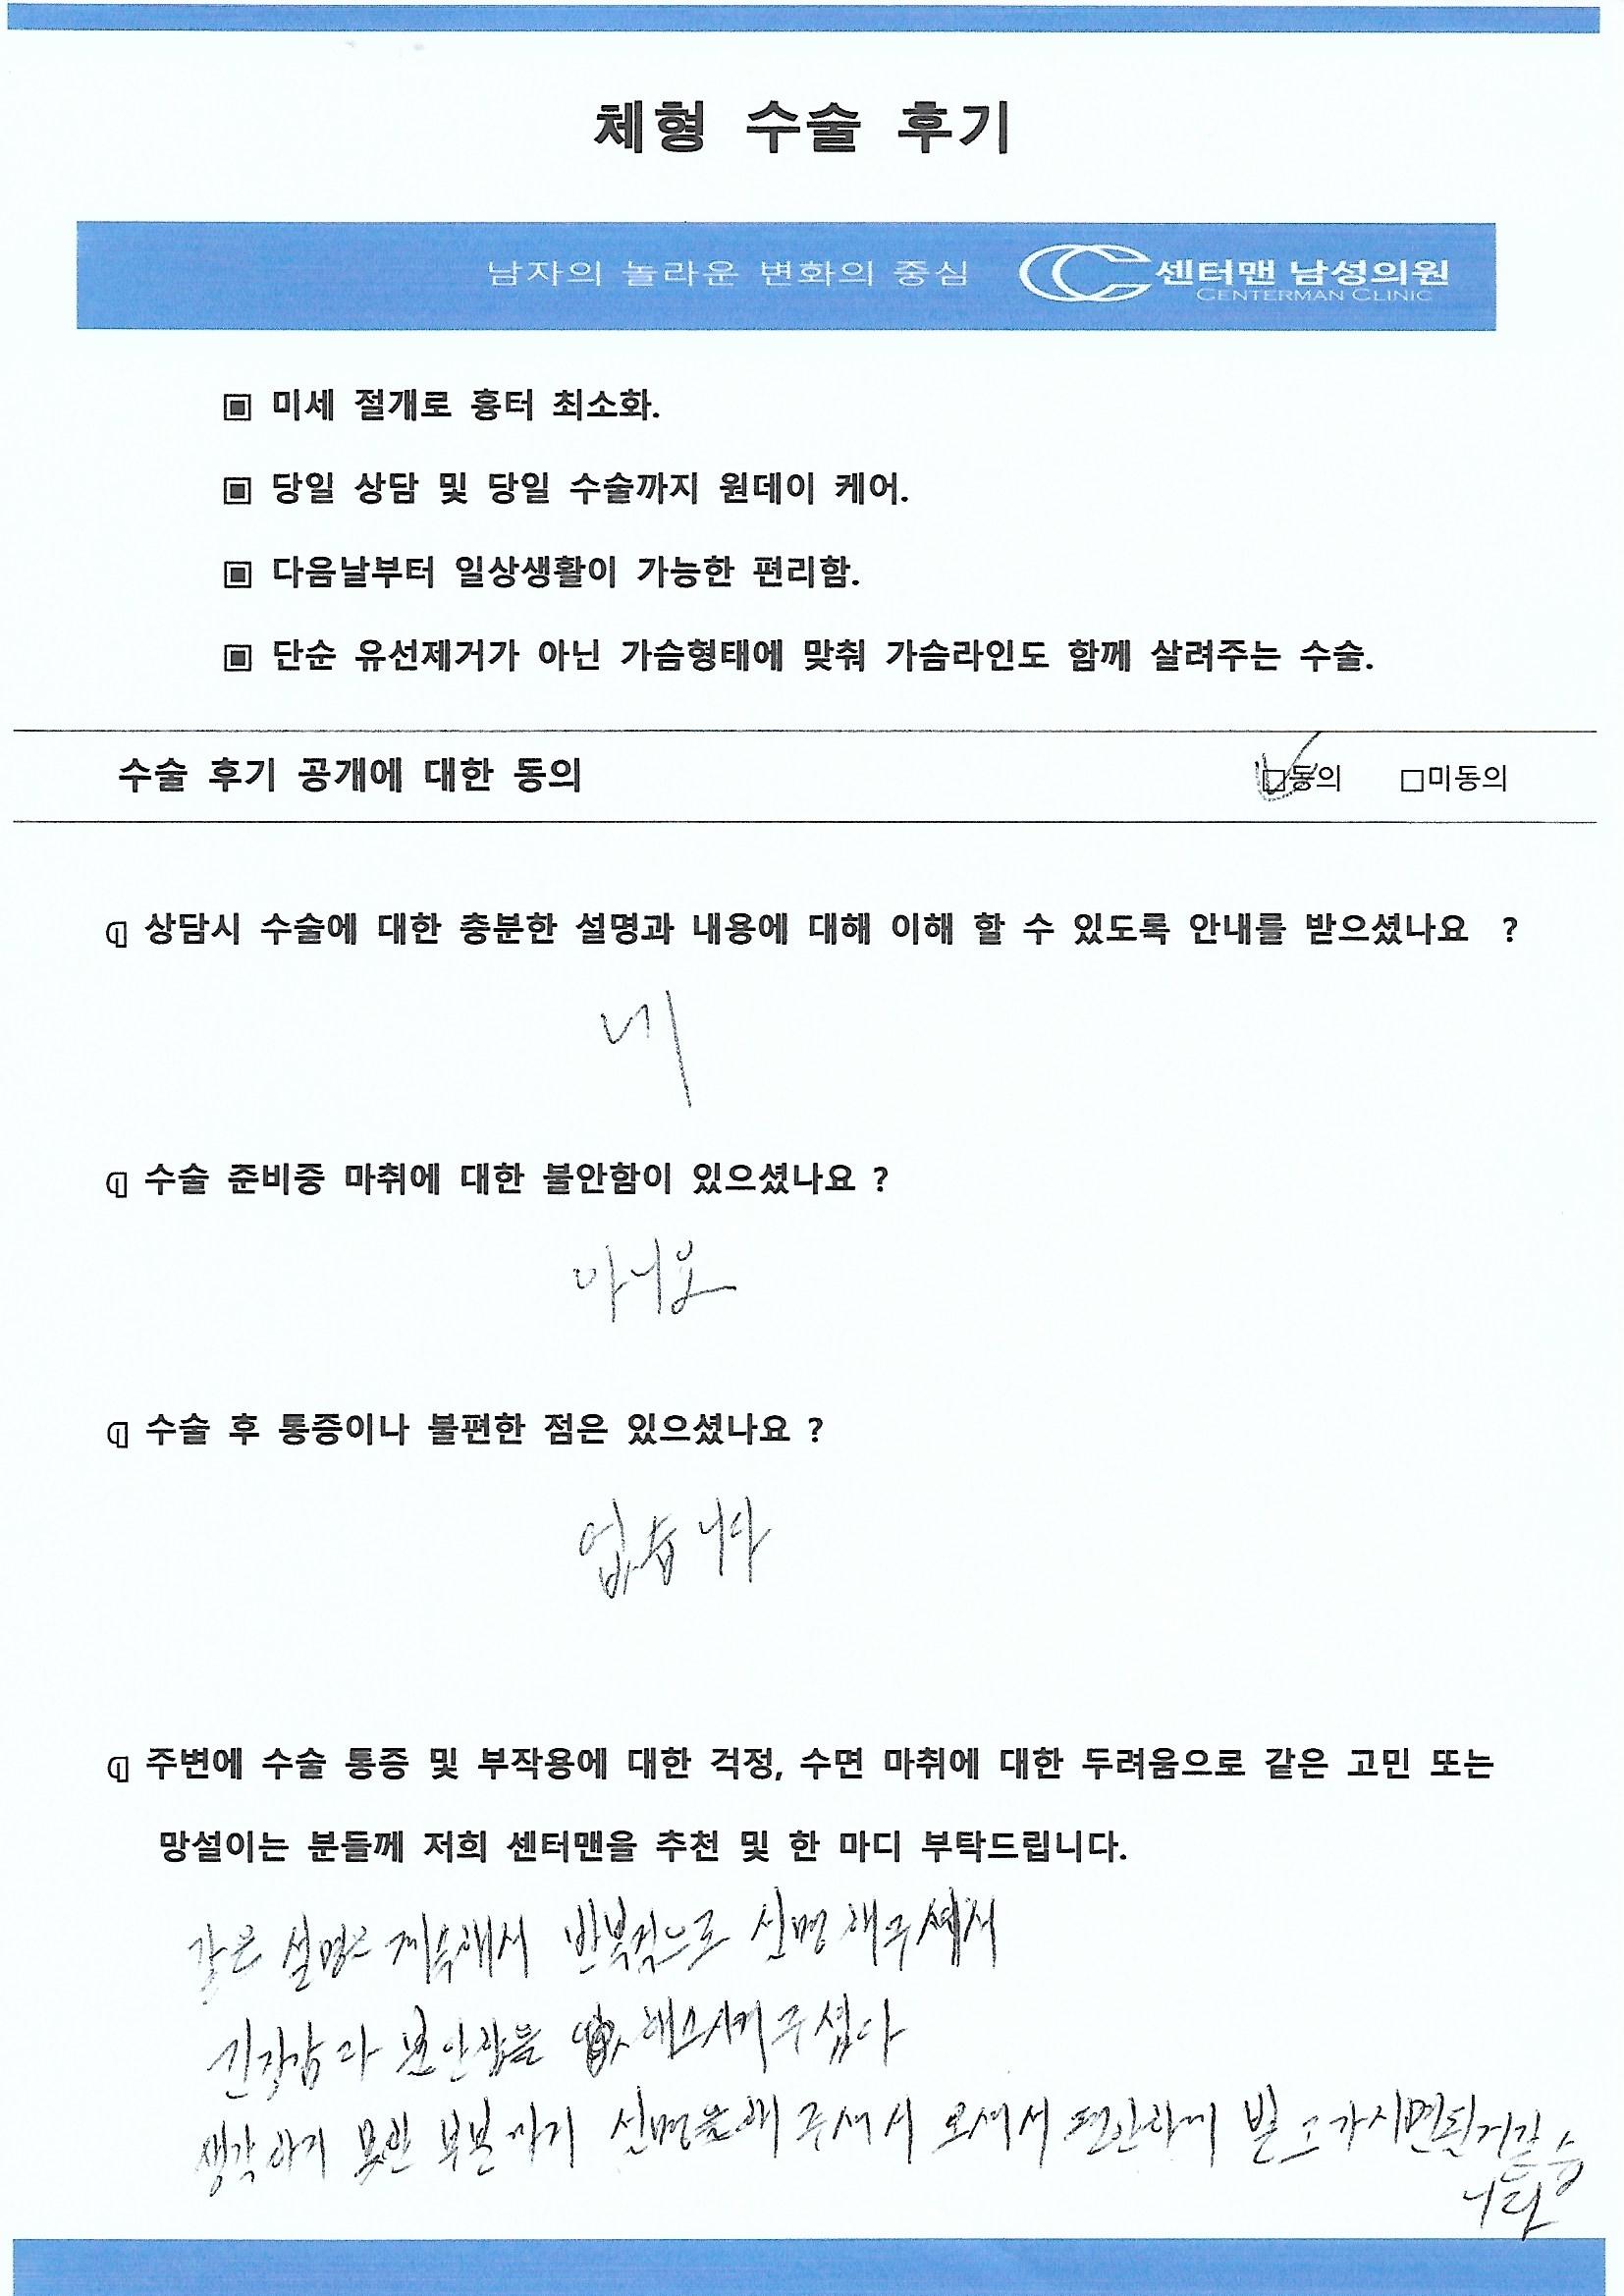 체형 수술 후기
남자의 놀라운 변화의 중심 센터맨 남성의원
CENTERMAN CLINIC
▣ 미세 절개로 흉터 최소화.
▣ 당일 상담 및 당일 수술까지 원데이 케어.
▣ 다음날부터 일상생활이 가능한 편리함.
▣ 단순 유선제거가 아닌 가슴형태에 맞춰 가슴라인도 함께 살려주는 수술.
수술 후기 공개에 대한 동의 □동의 □미동의
상담시 수술에 대한 충분한 설명과 내용에 대해 이해 할 수 있도록 안내를 받으셨나요 ?
네
수술 준비중 마취에 대한 불안함이 있으셨나요 ?
아니요
수술 후 통증이나 불편한 점은 있으셨나요 ?
없습니다
주변에 수술 통증 및 부작용에 대한 걱정, 수면 마취에 대한 두려움으로 같은 고민 또는
망설이는 분들께 저희 센터맨을 추천 및 한 마디 부탁드립니다.
같은 설명을 계속해서 반복적으로 설명해주셔서
긴장감과 불안함을 해소시켜주셨다
생각하지 못한 부분까지 설명을해 주셔서 오셔서 편안하게 받고가시면될거같습
니다